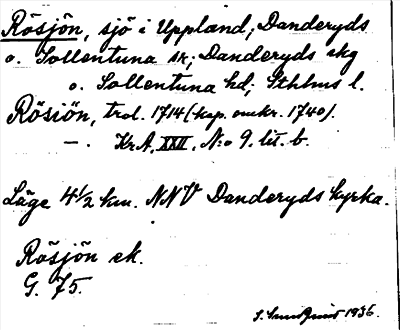 Rösjön, sjö i Uppland; Danderyds
o. Sollentuna sn; Danderyds skg
o. Sollentuna hd; Sthlms l.
Rösiön, trol. 1714 (kop. omkr. 1740).
—. KrA. XXII. N:o 9. lit. b.
Läge 4½ km. NNV Danderyds kyrka.
Rösjön ek.
G. 75.
1936.